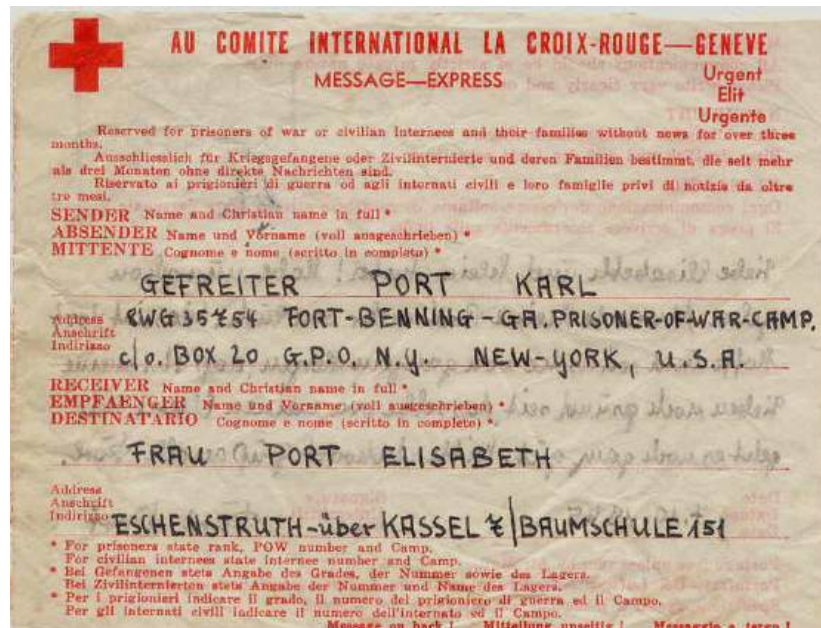 AU COMITE INTERNATIONAL LA CROIX-ROUGE—GENEVE
MESSAGE—EXPRESS
Urgent
Elit
Urgente
Reserved for prisoners of war or civilian Internees and their families without news for over three
months.
Ausschliesslich für Kriegsgefangene oder Zivilinternierte und deren Familien bestimmt, die seit mehr
als drei Monaten ohne direkte Nachrichten sind.
Riservato ai prigionieri di guerra od agli internati civili e loro famiglie privi di notizie da oltre
tre mesi.
SENDER Name and Christian name in full *
ABSENDER Name und Vorname (voll ausgeschrieben) *
MITTENTE Cognome e nome (scritto in completo) *
GEFREITER PORT KARL
Address
Anschrift
Indirizzo
8WG 35754 FORT-BENNING-GA. PRISONER-OF-WAR-CAMP.
c/o. BOX 20 G.P.O. N.Y. NEW-YORK, U.S.A.
RECEIVER Name and Christian name in full *
EMPFAENGER Name und Vorname (voll ausgeschrieben) *
DESTINATARIO Cognome e nome (scritto in completo) *
FRAU PORT ELISABETH
Address
Anschrift
Indirizzo
ESCHENSTRUTH-über KASSEL 7/BAUMSCHULE 151
* For prisoners state rank, POW number and Camp.
For civilian internees state internee number and Camp.
* Bei Gefangenen stets Angabe des Grades, der Nummer sowie des Lagers.
Bei Zivilinternierten stets Angabe der Nummer und Name des Lagers.
* Per i prigionieri indicare il grado, il numero del prigioniero di guerra ed il Campo.
Per gli internati civili indicare il numero dell'internato ed il Campo.
Message on back ! Mitteilung umseitig ! Messaggio a tergo !